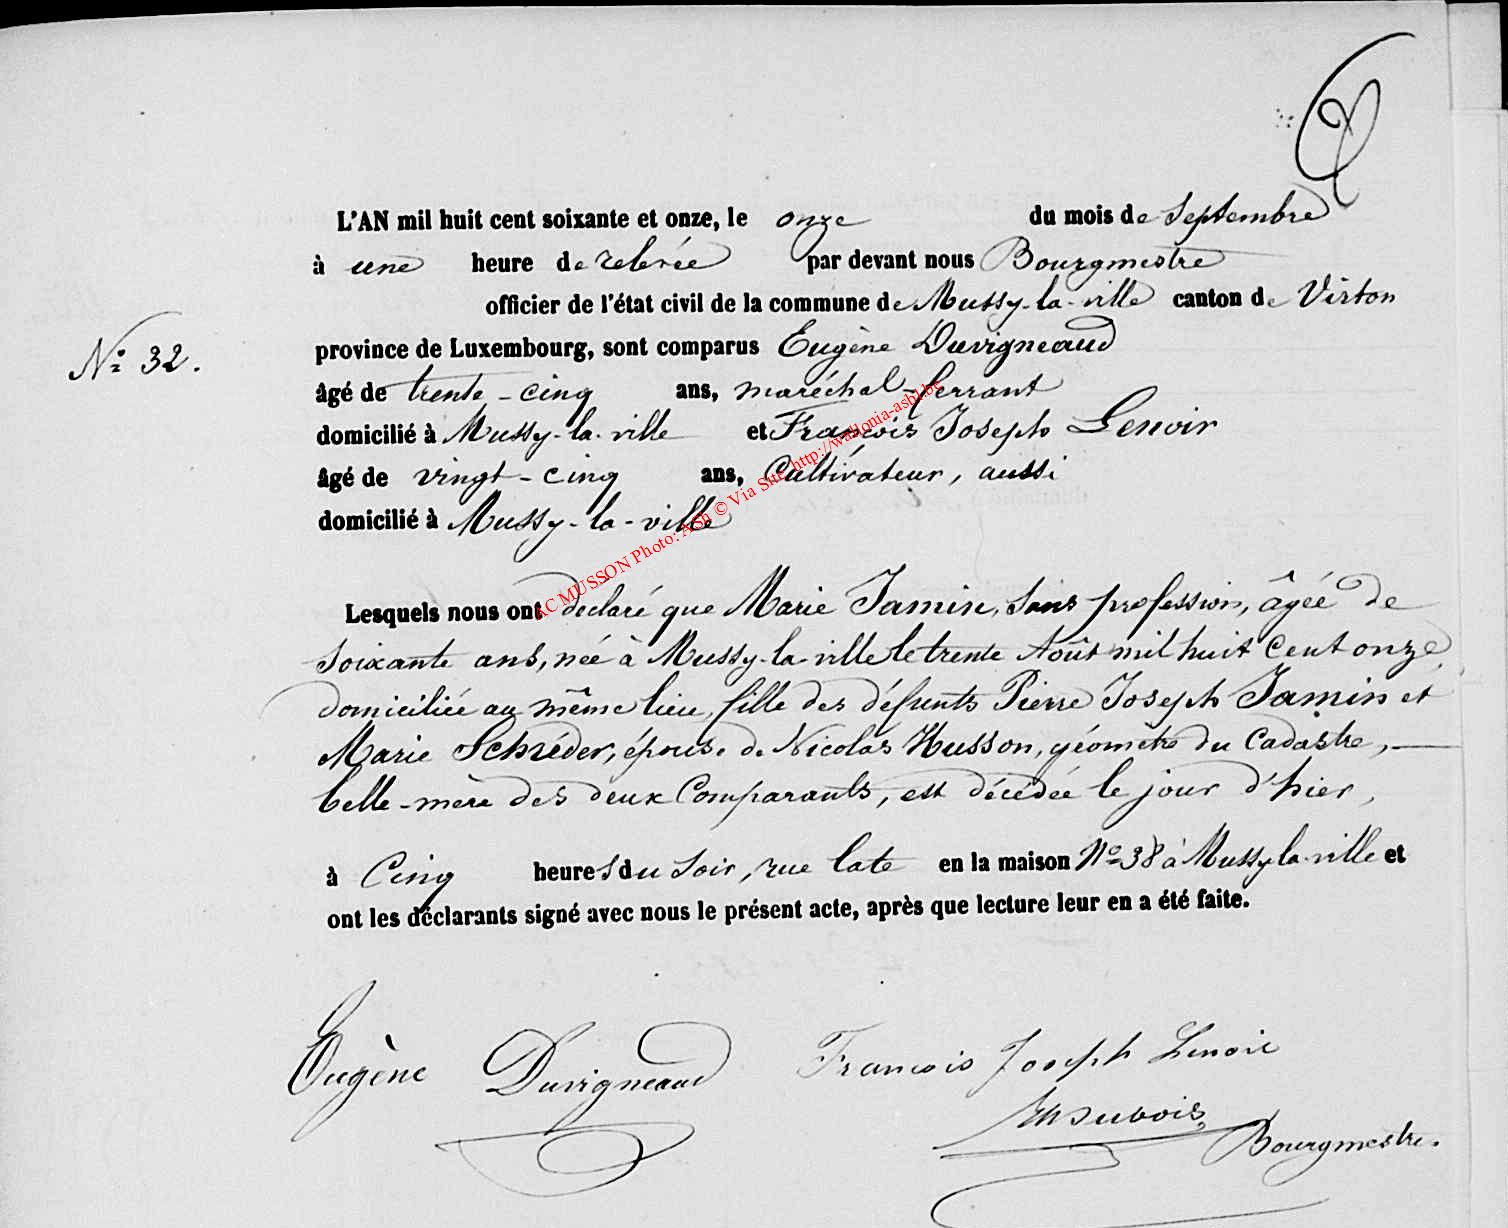 L'AN mil huit cent soixante et onze, le onze du mois de Septembre
à une heure de relevée par devant nous Bourgmestre
officier de l'état civil de la commune de Mussy-la-ville canton de Virton
province de Luxembourg, sont comparus Eugène Duvigneaud
N° 32.
âgé de trente-cinq ans, maréchal-ferrant
domicilié à Mussy-la-ville et François Joseph Lenoir
âgé de vingt-cinq ans, Cultivateur, aussi
domicilié à Mussy-la-ville
AC MUSSON Photo: ASh © Via Site: http://wallonia-asbl.be
Lesquels nous ont déclaré que Marie Jamin, sans profession, âgée de
soixante ans, née à Mussy-la-ville le trente Août mil huit cent onze,
domiciliée au même lieu, fille des défunts Pierre Joseph Jamin et
Marie Schréder, épouse de Nicolas Husson, géomètre du Cadastre,
belle-mère des deux Comparants, est décédée le jour d'hier,
à Cinq heures du soir, rue late en la maison N° 38 à Mussy-la-ville et
ont les déclarants signé avec nous le présent acte, après que lecture leur en a été faite.
Eugène Duvigneaud François Joseph Lenoir
Dubois
Bourgmestre.